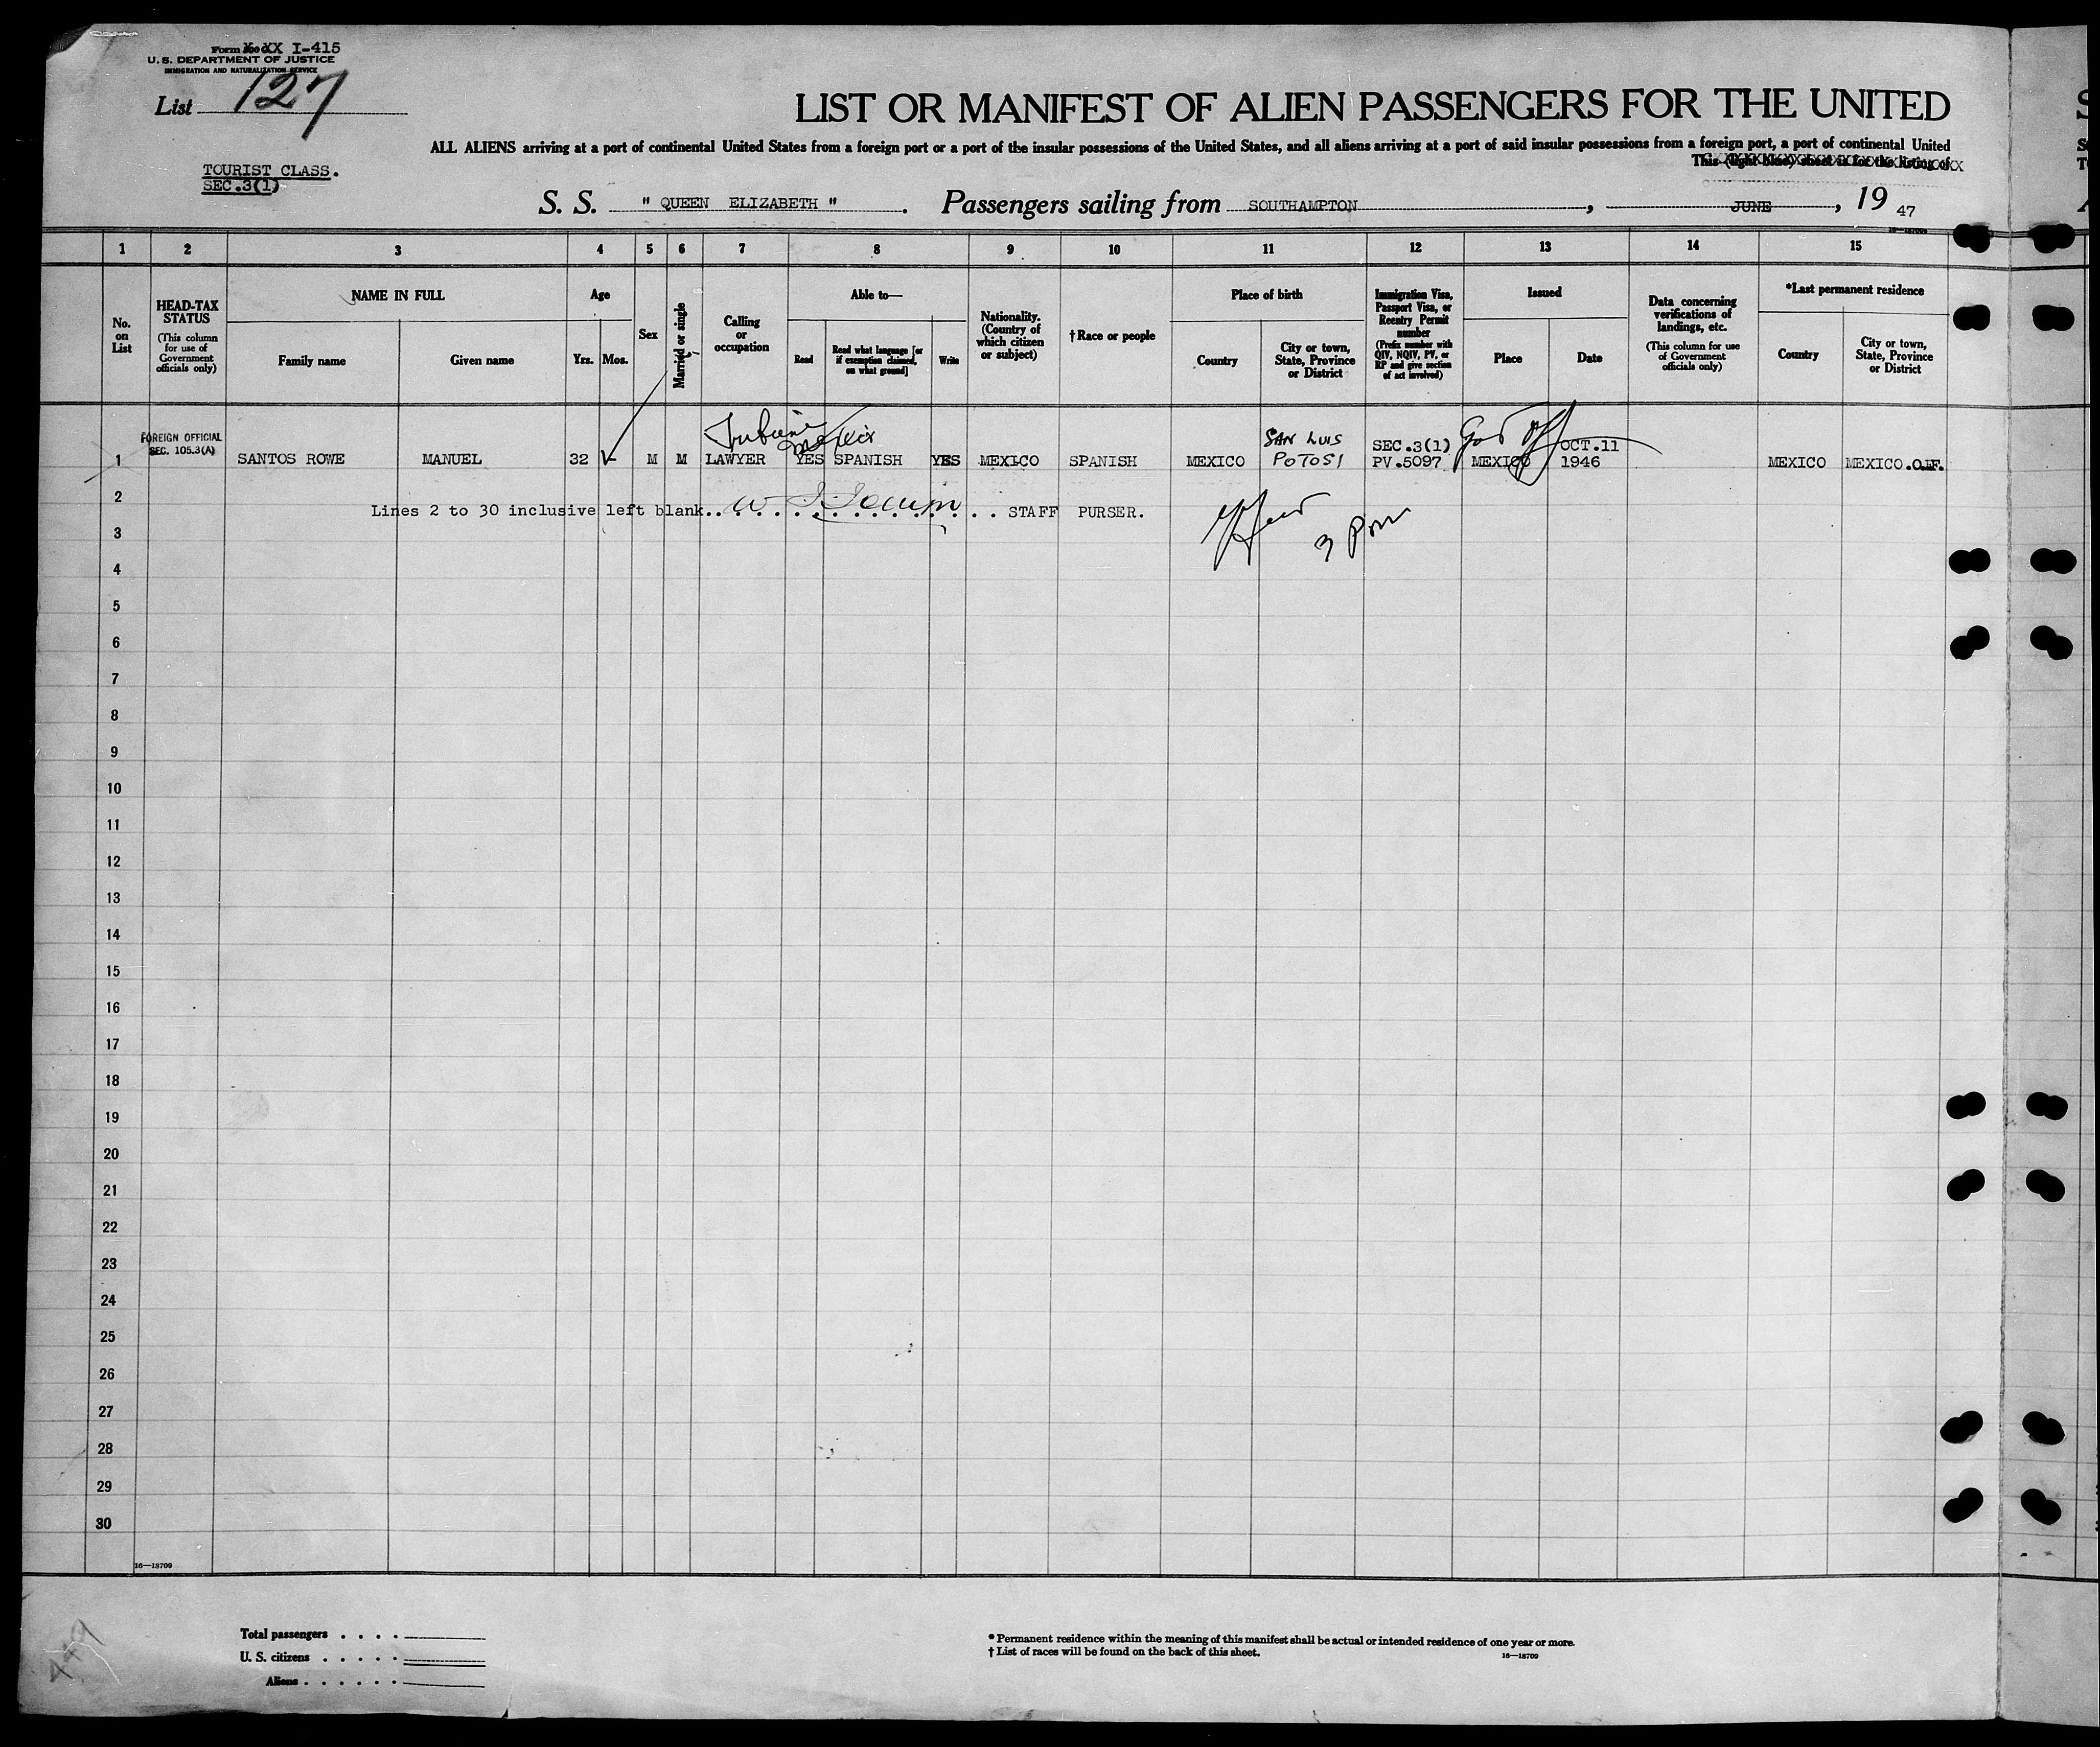 Form XX I-415
U. S. DEPARTMENT OF JUSTICE
IMMIGRATION AND NATURALIZATION SERVICE
List 127
TOURIST CLASS.
SEC.3(1)
LIST OR MANIFEST OF ALIEN PASSENGERS FOR THE UNITED
ALL ALIENS arriving at a port of continental United States from a foreign port or a port of the insular possessions of the United States, and all aliens arriving at a port of said insular possessions from a foreign port, a port of continental United
This (light blue) sheet is for the listing of
S. S. " QUEEN ELIZABETH ". Passengers sailing from SOUTHAMPTON, JUNE, 19 47
16—18709
1 2 3 4 5 6 7 8 9 10 11 12 13 14 15
No. on List
HEAD-TAX STATUS
(This column for use of Government officials only)
NAME IN FULL
Family name
Given name
Age
Yrs. Mos.
Sex
Married or single
Calling or occupation
Able to—
Read
Read what language [or if exemption claimed, on what ground]
Write
Nationality. (Country of which citizen or subject)
† Race or people
Place of birth
Country
City or town, State, Province or District
Immigration Visa, Passport Visa, or Reentry Permit number
(Prefix number with QIV, NQIV, PV, or RP and give section of act involved)
Issued
Place
Date
Data concerning verifications of landings, etc.
(This column for use of Government officials only)
*Last permanent residence
Country
City or town, State, Province or District
FOREIGN OFFICIAL
SEC. 105.3(A)
SAN LUIS
SEC.3(1) OCT.11
1 SANTOS ROWE MANUEL 32 M M LAWYER YES SPANISH YES MEXICO SPANISH MEXICO POTOSI PV.5097 MEXICO 1946 MEXICO MEXICO.O.F.
2
Lines 2 to 30 inclusive left blank. STAFF PURSER.
3 3 pm
4
5
6
7
8
9
10
11
12
13
14
15
16
17
18
19
20
21
22
23
24
25
26
27
28
29
30
16—18709
449
Total passengers . . . .
U. S. citizens . . . . .
Aliens . . . . . .
* Permanent residence within the meaning of this manifest shall be actual or intended residence of one year or more.
† List of races will be found on the back of this sheet.
16—18709